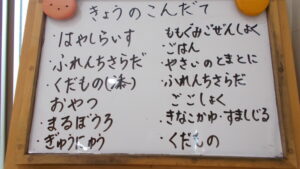 きょうのこんだて
・はやしらいす
・ふれんちさらだ
・くだもの
おやつ
・まるぼうろ
・ぎゅうにゅう
ももぐみごぜんしょく
・ごはん
・やさいのときとに
・ふれんちさらだ
ごごしょく
・きなこかゆ・すましじる
・くだもの